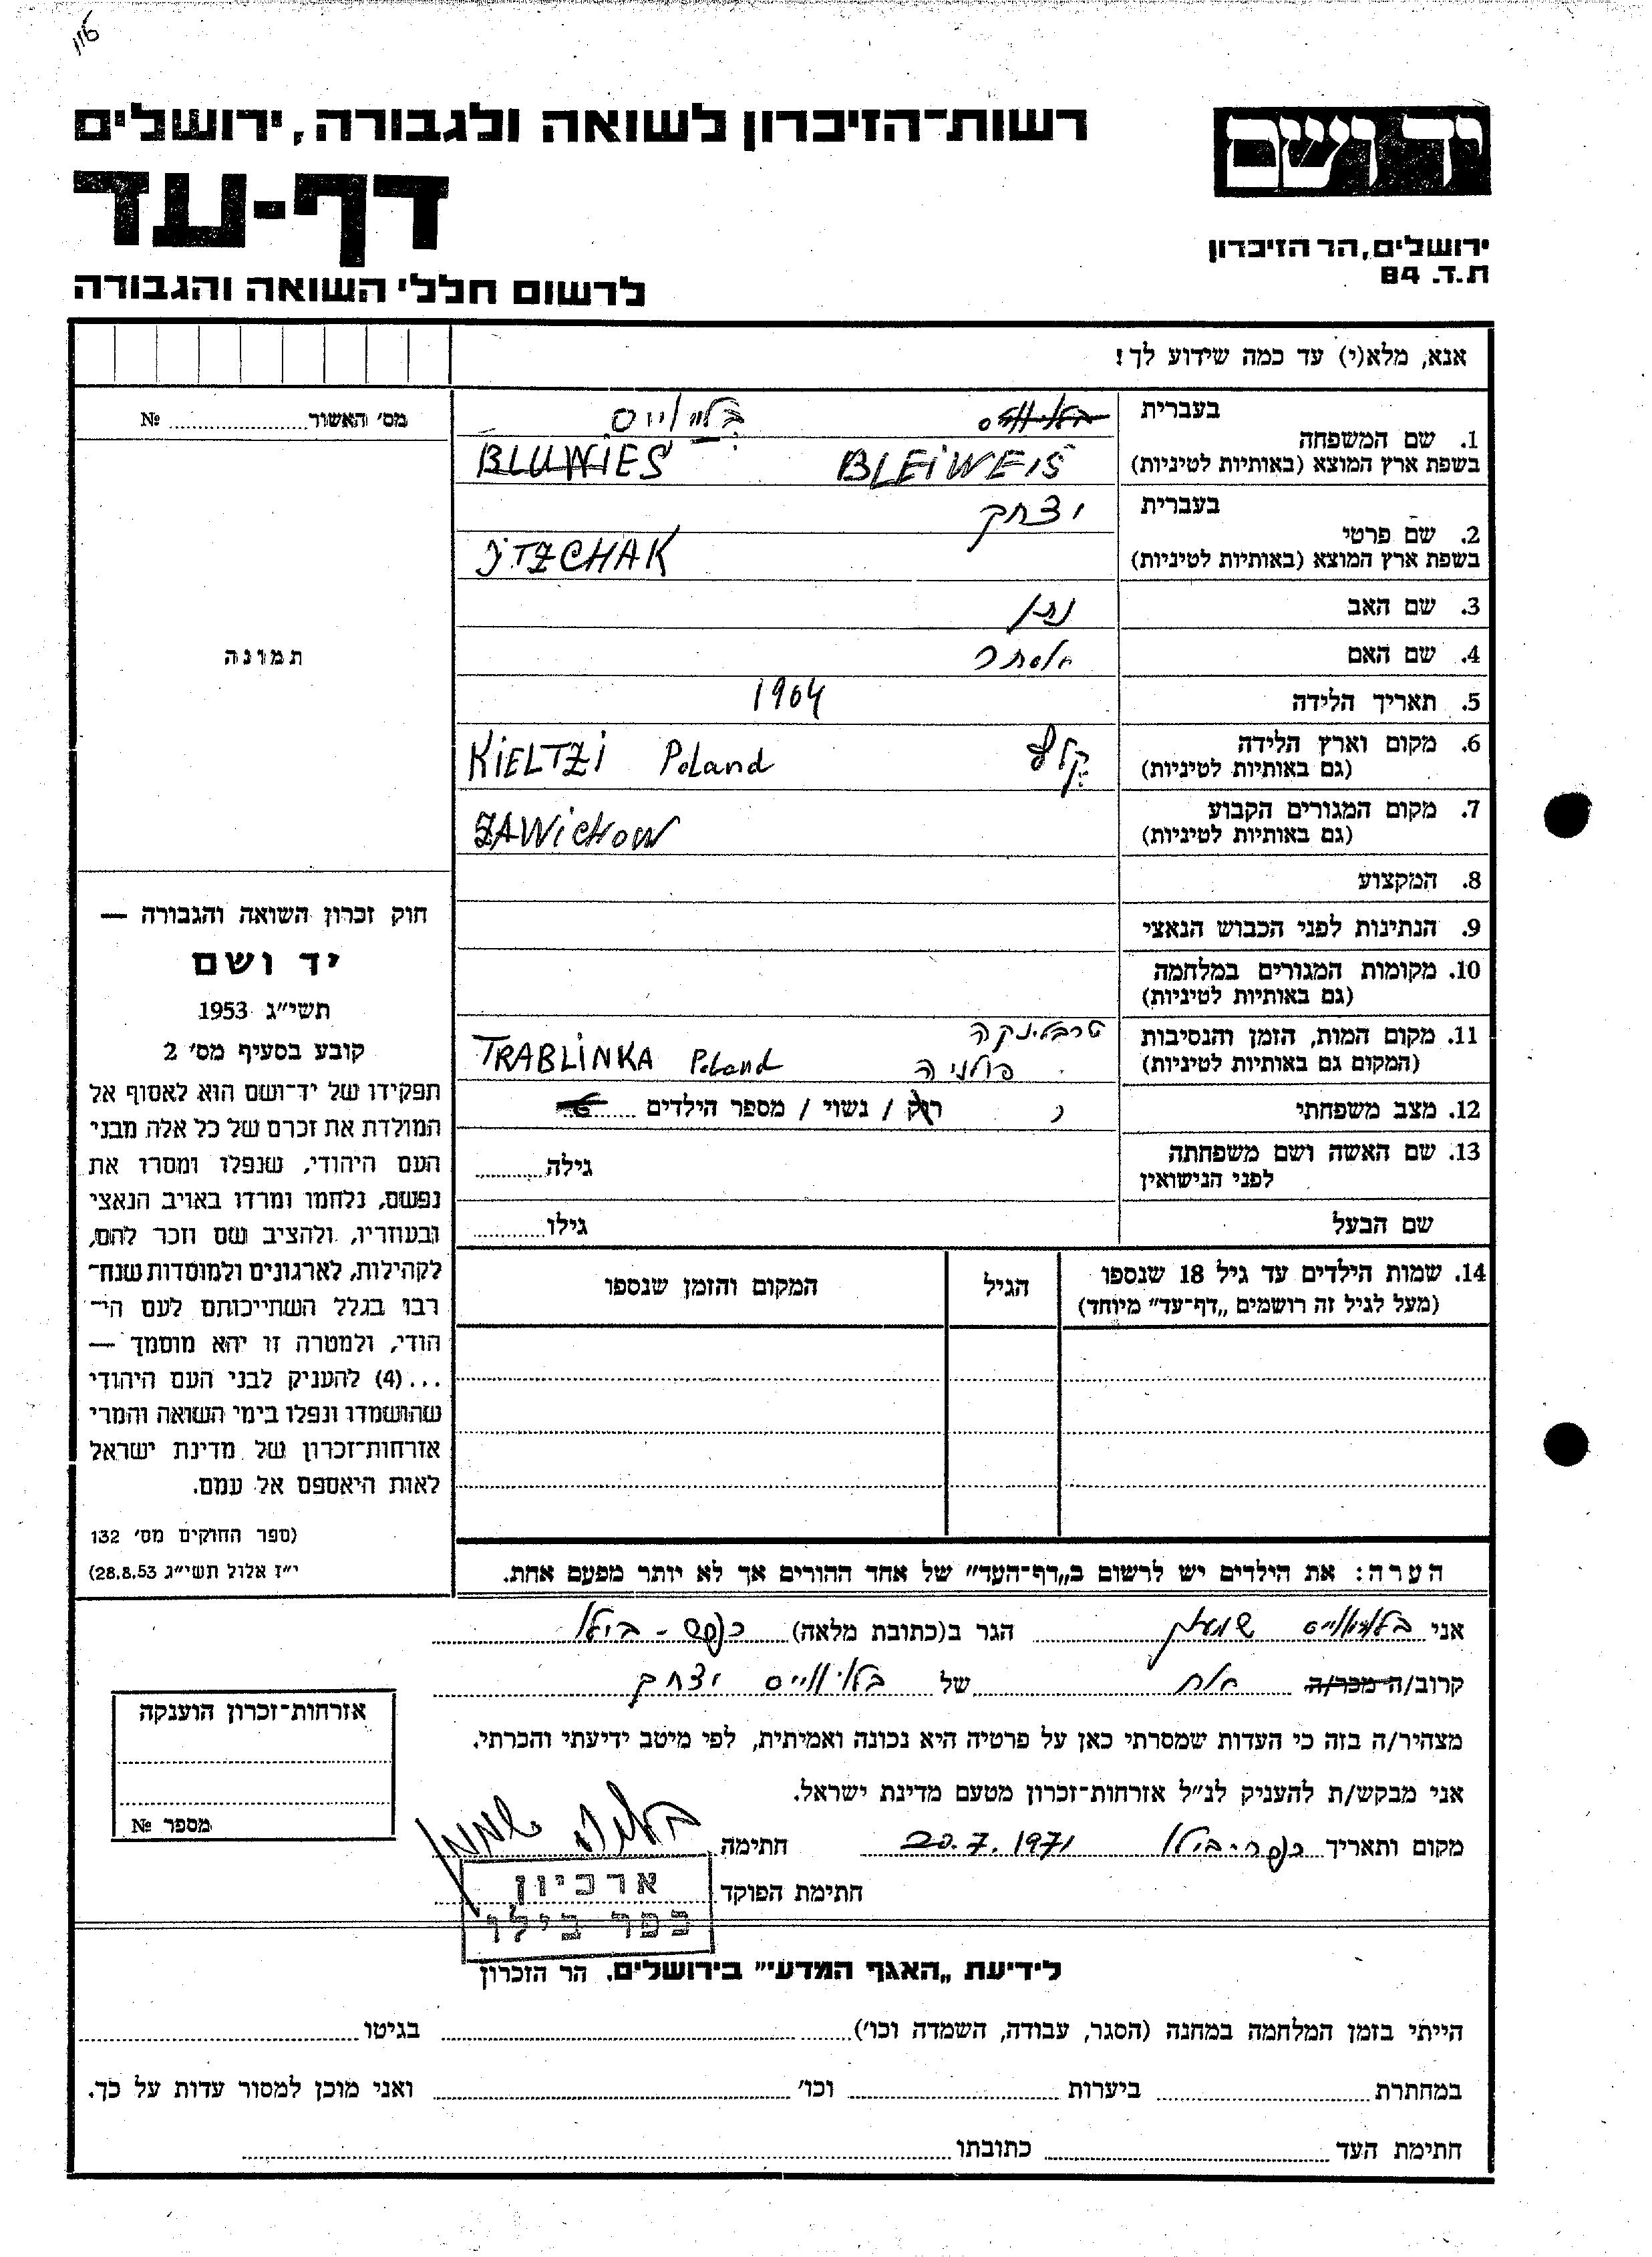 רשות־הזיכרון לשואה ולגבורה, ירושלים
יד ושם
דף-עד
ירושלים, הר הזיכרון
ת.ד. 84
לרשום חללי השואה והגבורה
אנא, מלא(י) עד כמה שידוע לך!
מס׳ האשור № 
1. שם המשפחה
בעברית בלייוייס
בשפת ארץ המוצא (באותיות לטיניות) BLUWIES BLEIWEIS
2. שם פרטי
בעברית יצחק
בשפת ארץ המוצא (באותיות לטיניות) JTZCHAK
3. שם האב נתן
4. שם האם אסתר
תמונה
5. תאריך הלידה 1904
6. מקום וארץ הלידה
(גם באותיות לטיניות) KIELTZI Poland קלץ
7. מקום המגורים הקבוע
(גם באותיות לטיניות) ZAWICHOW
8. המקצוע
9. הנתינות לפני הכבוש הנאצי
10. מקומות המגורים במלחמה
(גם באותיות לטיניות)
11. מקום המות, הזמן והנסיבות טרבלינקה
(המקום גם באותיות לטיניות) TRABLINKA Poland פולניה
12. מצב משפחתי רווק / נשוי / מספר הילדים
13. שם האשה ושם משפחתה
לפני הנישואין גילה
שם הבעל גילו
14. שמות הילדים עד גיל 18 שנספו
(מעל לגיל זה רושמים „דף־עד” מיוחד)
הגיל
המקום והזמן שנספו
חוק זכרון השואה והגבורה —
יד ושם
תשי״ג 1953
קובע בסעיף מס׳ 2
תפקידו של יד־ושם הוא לאסוף אל
המולדת את זכרם של כל אלה מבני
העם היהודי, שנפלו ומסרו את
נפשם, נלחמו ומרדו באויב הנאצי
ובעוזריו, ולהציב שם וזכר להם,
לקהילות, לארגונים ולמוסדות שנח־
רבו בגלל השתייכותם לעם הי־
הודי, ולמטרה זו יהא מוסמך —
...(4) להעניק לבני העם היהודי
שהושמדו ונפלו בימי השואה והמרי
אזרחות־זכרון של מדינת ישראל
לאות היאספם אל עמם.
(ספר החוקים מס׳ 132
י״ז אלול תשי״ג 28.8.53)
הערה: את הילדים יש לרשום ב„דף־העד” של אחד ההורים אך לא יותר מפעם אחת.
אני בלייוייס שמעון הגר ב(כתובת מלאה) כפר - בילו
קרוב/ה מכר/ה אח של בלייוייס יצחק
מצהיר/ה בזה כי העדות שמסרתי כאן על פרטיה היא נכונה ואמיתית, לפי מיטב ידיעתי והכרתי.
אני מבקש/ת להעניק לנ״ל אזרחות־זכרון מטעם מדינת ישראל.
מקום ותאריך כפר-בילו 20.7.1971 חתימה
חתימת הפוקד
ארכיון
כפר בילו
אזרחות־זכרון הוענקה
מספר №
לידיעת „האגף המדעי” בירושלים. הר הזכרון
הייתי בזמן המלחמה במחנה (הסגר, עבודה, השמדה וכו׳) בגיטו
במחתרת ביערות וכו׳ ואני מוכן למסור עדות על כך.
חתימת העד כתובתו